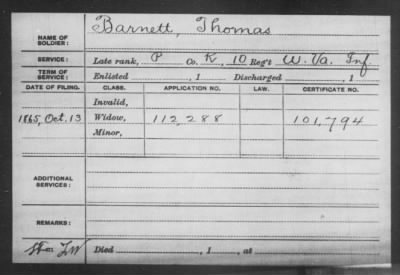 NAME OF SOLDIER: Barnett, Thomas
SERVICE: Late rank, P Co. K, 10 Reg't W. Va. Inf
TERM OF SERVICE: Enlisted , 1 Discharged , 1
DATE OF FILING. CLASS. APPLICATION NO. LAW. CERTIFICATE NO.
Invalid,
1865, Oct. 13 Widow, 112,288 101,794
Minor,
ADDITIONAL SERVICES:
REMARKS:
Died , 1 , at